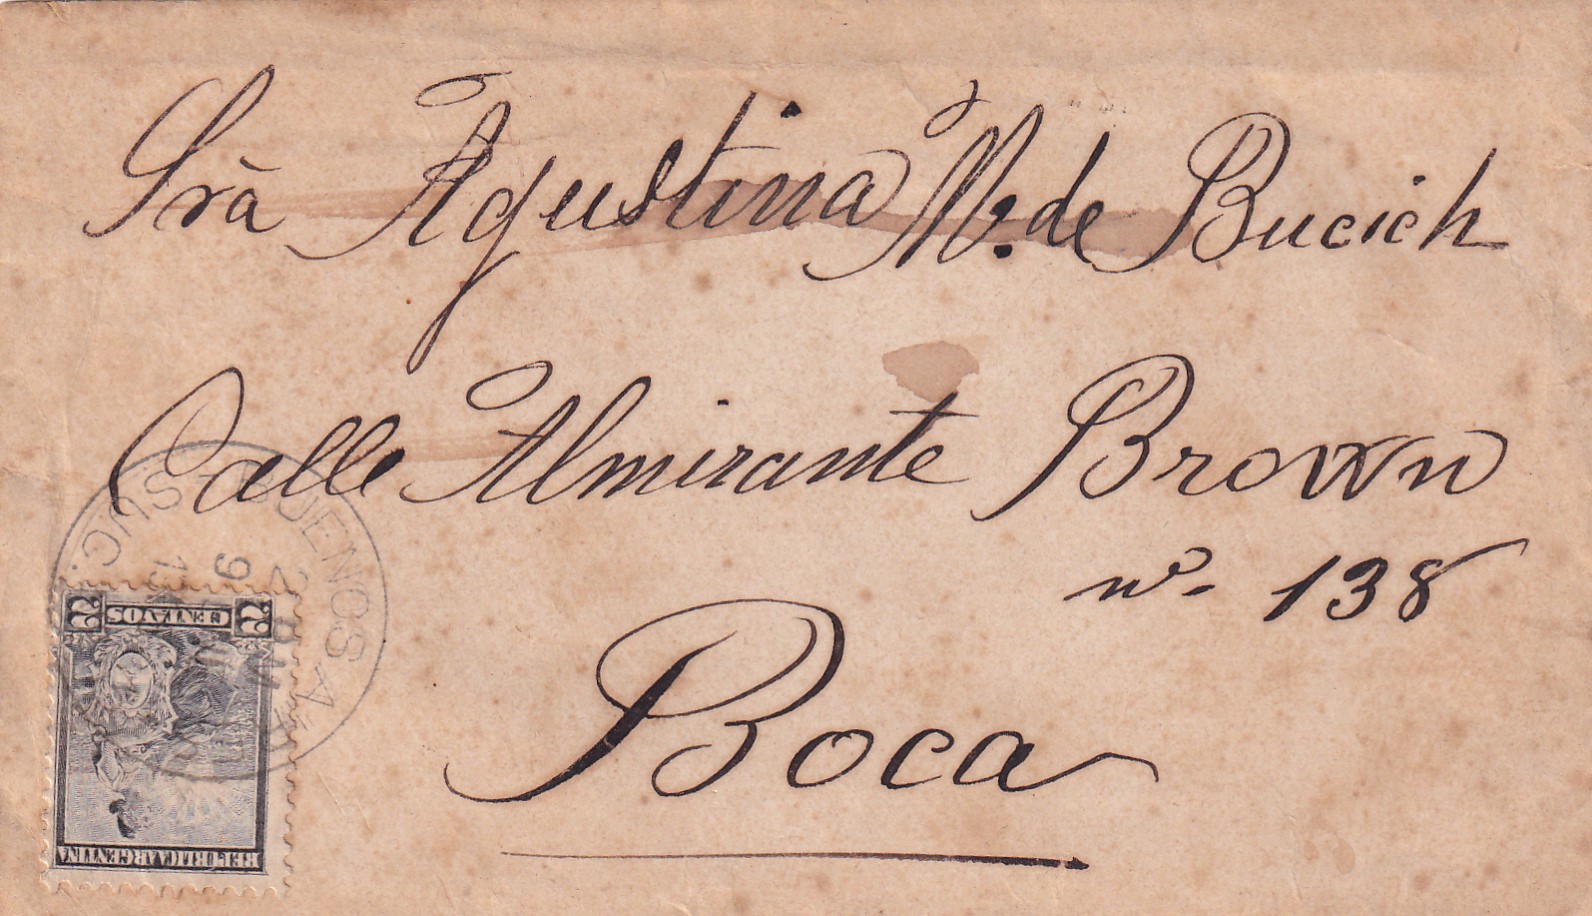 Srà Agustina M. de Bucich
Calle Almirante Brown
nº. 138
Boca
BUENOS A
SUC.
2 CENTAVOS 2
REPUBLICA ARGENTINA